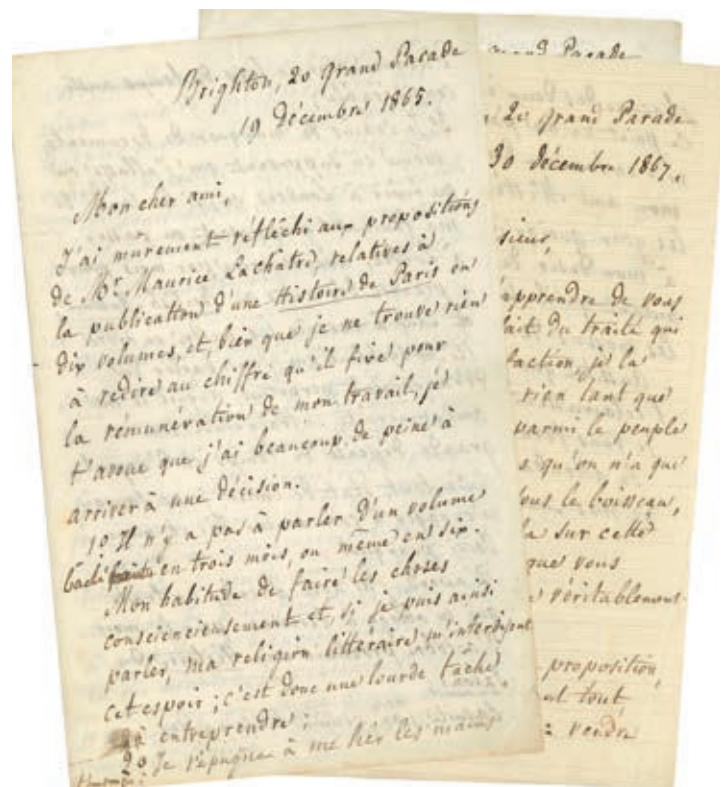 Brighton, 20 grand Parade
19 décembre 1865.
Mon cher ami,
J'ai murement réfléchi aux propositions
de Mr. Maurice Lachatre, relatives à
la publication d'une Histoire de Paris en
dix volumes, et, bien que je ne trouve rien
à redire au chiffre qu'il fixe pour
la rémunération de mon travail, je
t'avoue que j'ai beaucoup de peine à
arriver à une décision.
1o Il n'y a pas à parler d'un volume
baclé en trois mois, ou même en six.
Mon habitude de faire les choses
consciencieusement et, si je puis ainsi
parler, ma religion littéraire m'interdisent
cet espoir ; c'est donc une lourde tâche
à entreprendre ;
2o Je répugne à me lier les mains
grand Parade
20 grand Parade
30 décembre 1867.
sieur,
apprendre de vous
fait du traité qui
faction, je la
rien tant que
parmi le peuple
s qu'on n'a que
sous le boisseau,
la sur cette
que vous
véritablement
proposition,
tout,
vendre